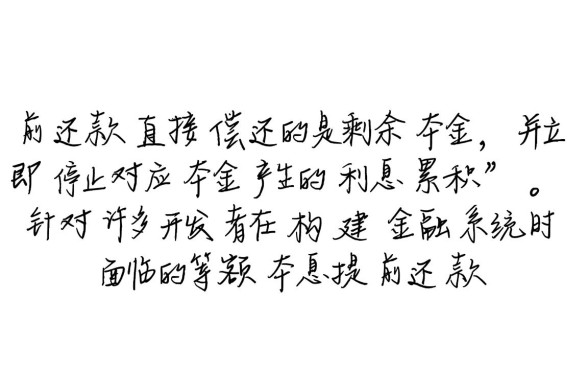 前还款直接偿还的是剩余本金，并立
即停止对应本金产生的利息累积”。
针对许多开发者在构建金融系统时
面临的等额本息提前还款